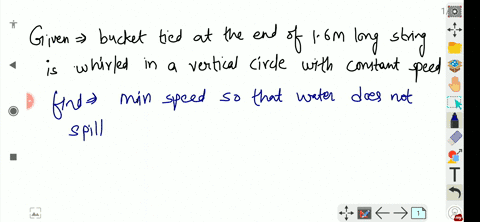 Given ⇒ bucket tied at the end of 1.6m long string
is whirled in a vertical circle with constant speed
find ⇒ min speed so that water does not
spill